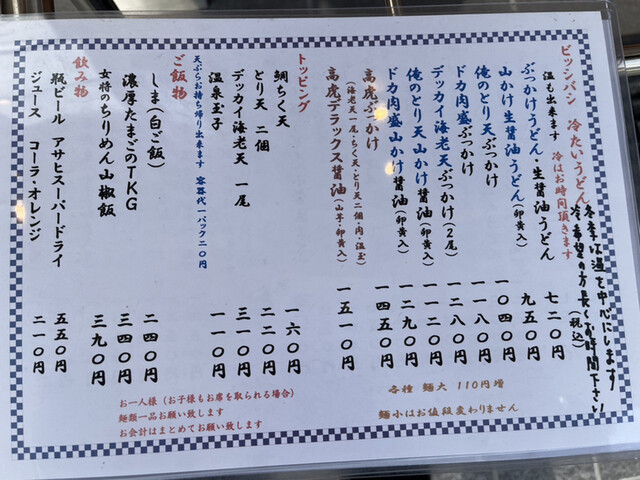 冬季は温を中心にします
冷希望の方長くお時間下さい
(税込)
ビッシバシ 冷たいうどん
温も出来ます 冷はお時間頂きます
ぶっかけうどん・生醤油うどん 七二〇円
山かけ生醤油うどん(卵黄入) 九五〇円
俺のとり天ぶっかけ 一〇四〇円
ドカ肉盛ぶっかけ 一一八〇円
デッカイ海老天ぶっかけ(2尾) 一二八〇円
俺のとり天山かけ醤油(卵黄入) 一一二〇円
ドカ肉盛山かけ醤油(卵黄入) 一二九〇円
高虎ぶっかけ 一四五〇円
(海老天一尾・ちく天・とり天二個・肉・温玉)
高虎デラックス醤油(山芋・卵黄入) 一五一〇円
トッピング
鯛ちく天 一六〇円
とり天 二個 二二〇円
デッカイ海老天 一尾 二三〇円
温泉玉子 一一〇円
天ぷらお持ち帰り出来ます 容器代一パック二〇円
ご飯物
しま(白ご飯) 二四〇円
濃厚たまごのTKG 三四〇円
女将のちりめん山椒飯 三九〇円
飲み物
瓶ビール アサヒスーパードライ 五五〇円
ジュース コーラ・オレンジ 二一〇円
各種 麺大 110円増
麺小はお値段変わりません
お一人様(お子様もお席を取られる場合)
麺類一品お願い致します
お会計はまとめてお願い致します